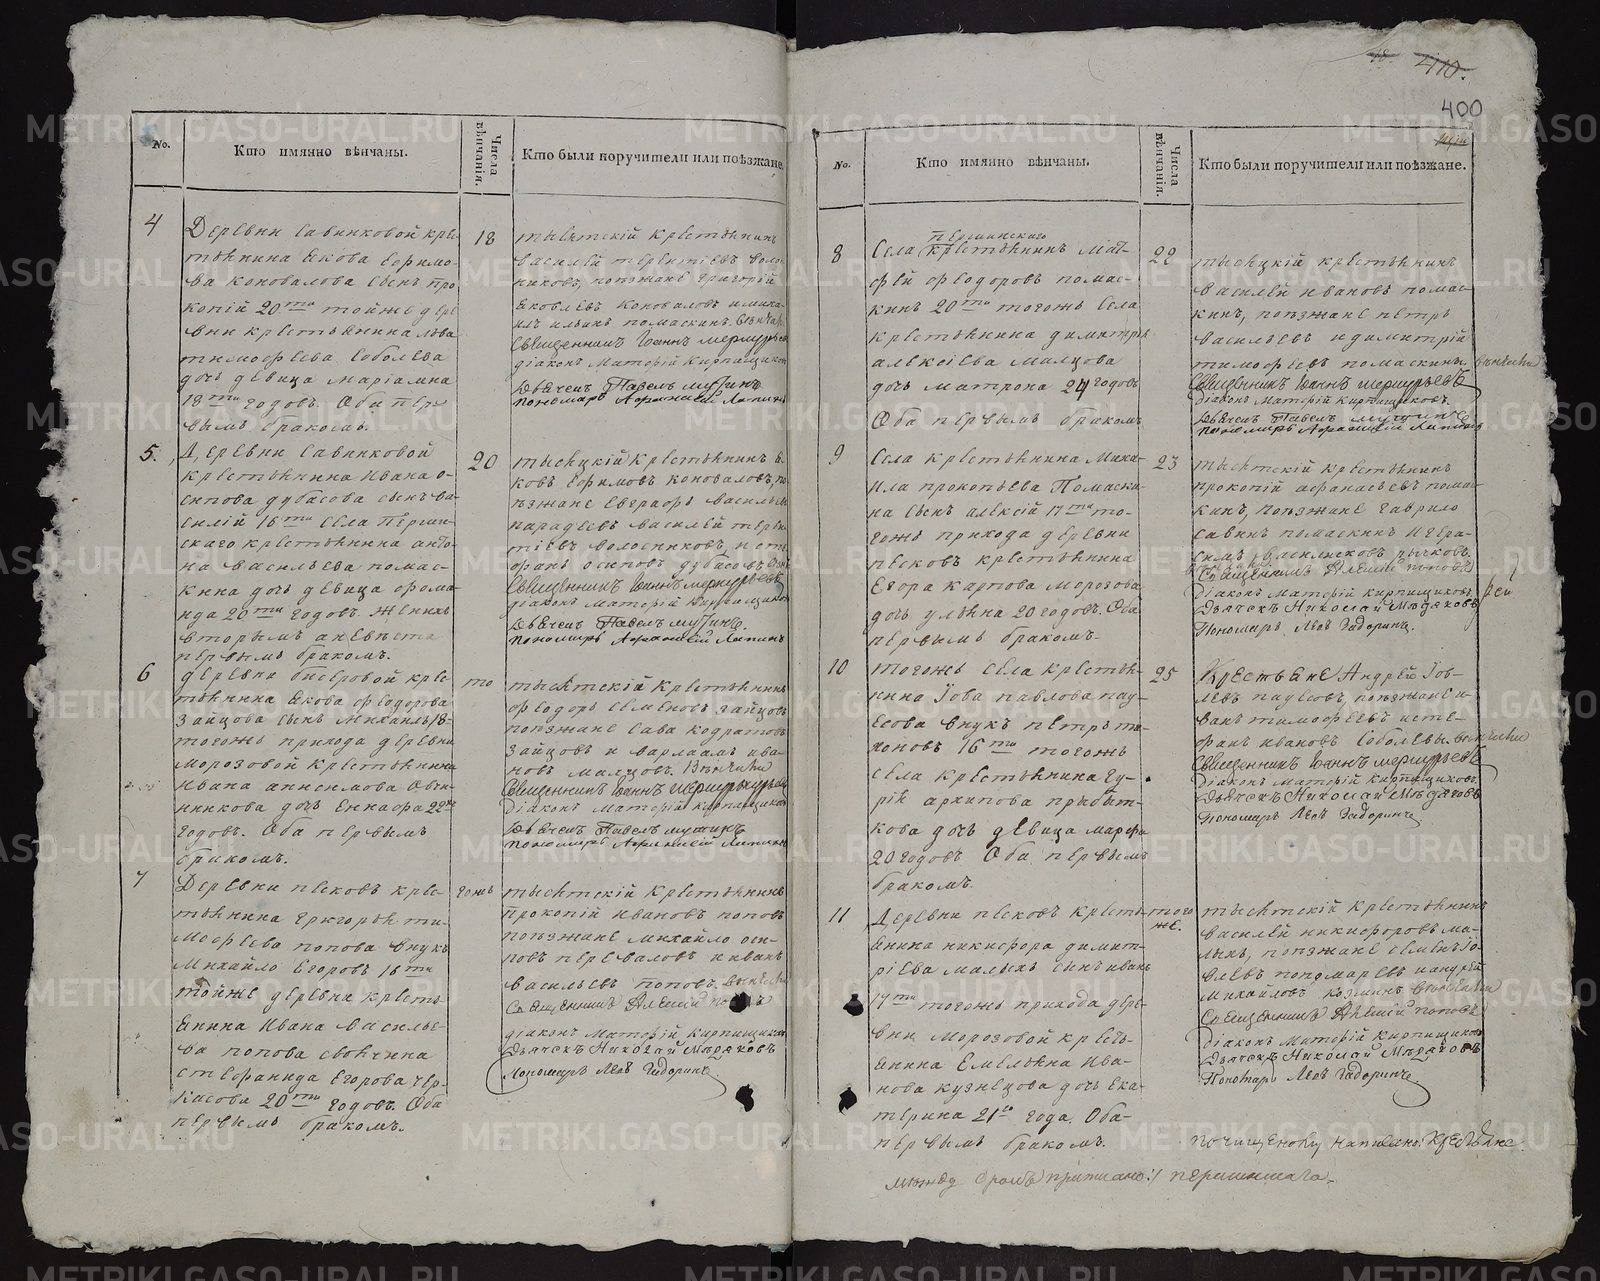 No.
Кто имянно вѣнчаны.
Числа вѣнчанія.
Кто были поручители или поѣзжане.
4
Деревни Савинковой кре-
стьянина Якова Ефимо-
ва Коновалова сынъ Про-
копій 20ти тойже дере
вни крестьянина Льва
Тимофѣева Соболева
дочь девица Маріамна
18ти годовъ. Оба пер-
вымъ бракомъ.
18
тысяцкій крестьянинъ
Василей Терентіевъ Воло-
никовъ, поезжане Григорій
Яковлевъ Коноваловъ и Миха-
илъ Ильинъ Помаскинъ. Венчали
Священникъ Іоаннъ Меркурьевъ
діаконъ Матфій Кирпищиковъ
Дьячекъ Павелъ
Пономарь Афанасей Лапинъ
5.
Деревни Савинковой
крестьянина Ивана О-
сипова Дубасова сынъ Ва-
силій 16ти села Першин-
скаго крестьянина Анто-
на Васильева Помас-
кина дочь девица Фома-
ида 20ти годовъ. Женихъ
вторымъ а невѣста
первымъ бракомъ.
20
тысяцкій крестьянинъ Я-
ковъ Ефимовъ Коноваловъ, по-
езжане Евграфъ Васильевъ
Василей Терен-
тіевъ и Сте-
фанъ Осиповъ Дубасовъ
Священникъ Іоаннъ Меркурьевъ
діаконъ Матфій Кирпищиковъ
Дьячекъ Павелъ
Пономарь Афанасей Лапинъ
6
деревни крес-
тьянина Якова Федорова
Зайцова сынъ Михаилъ 18-
тогожъ прихода деревни
Морозовой крестьянина
Ивана Анисимова Овчи-
нникова дочь 22хъ
годовъ. Оба первымъ
бракомъ.
то
тысяцкій крестьянинъ
Федоръ Семеновъ Зайцовъ
поезжане Сава Кодратовъ
Зайцовъ и Варлаамъ Ива-
новъ Малцовъ. Венчали
Священникъ Іоаннъ Меркурьевъ
Діаконъ Матфій Кирпищиковъ
Дьячекъ Павелъ
Пономарь Афанасей Лапинъ
7
Деревни Песковъ крес-
тьянина Григорья Ти-
мофеева Попова внукъ
Михайло Егоровъ 16ти
тойже деревни кресть-
янина Ивана Василье-
ва Попова своячина
Стефанида Егорова Чер-
касова 20ти годовъ. Оба
первымъ бракомъ.
гожъ
тысяцкій крестьянинъ
Прокопій Ивановъ Поповъ
поезжане Михайло Оси-
повъ Переваловъ и Иванъ
Васильевъ Поповъ. Венчали
Священникъ Алексій Поповъ
діаконъ Матфій Кирпищиковъ
Дьячекъ Николай
Пономарь Левъ Гадоринъ.
410.
400
No.
Кто имянно вѣнчаны.
Числа вѣнчанія.
Кто были поручители или поѣзжане.
8
Першинскаго
Села крестьянинъ Мат-
фей Феодоровъ Помас-
кинъ 20ти тогожъ села
крестьянина Димитрія
Алексіева Малцова
дочь Матрона 24 годовъ
Оба первымъ бракомъ
22
тысяцкій крестьянинъ
Василей Ивановъ Помас-
кинъ, поезжане Петръ
Васильевъ и Димитрій
Тимофеевъ Помаскины. Венчали
Священникъ Іоаннъ Меркурьевъ
діаконъ Матфій Кирпищиковъ
Дьячекъ Павелъ
Пономарь Афанасей Лапинъ
9
Села крестьянина Миха-
ила Прокопьева Помаски-
на сынъ Алексій 17ти то-
гожъ прихода деревни
Песковъ крестьянина
Егора Карпова Морозова
дочь Улѣяна 20 годовъ. Оба
первымъ бракомъ.
23
тысяцкій крестьянинъ
Прокопій Афанасьевъ Помас-
кинъ, поезжане Гаврило
Савинъ Помаскинъ и Гера-
симъ Рычковъ.
Священникъ Алексій Поповъ
Діаконъ Матфій Кирпищиковъ
Дьячекъ Николай
Пономарь Левъ Гадоринъ.
10
тогожъ села крестья-
нина Іова Павлова Пау-
сова внукъ Петръ Ти-
хоновъ 16ти тогожъ
села крестьянина Гу-
рія Архипова Прибыт-
кова дочь девица Марфа
20 годовъ Оба первымъ
бракомъ.
25
Крестьяне Андрей Іов-
левъ Паусовъ, поезжане И-
ванъ Тимофеевъ и Сте-
фанъ Ивановъ Соболевы. Венчали
Священникъ Іоаннъ Меркурьевъ
Діаконъ Матфій Кирпищиковъ
Дьячекъ Николай
Пономарь Левъ Гадоринъ.
11
Деревни Песковъ кресть-
янина Никифора Димит-
ріева Малыхъ сынъ Иванъ
17ти тогожъ прихода дере-
вни Морозовой кресть-
янина Емельяна Ива-
нова Кузнецова дочь Ека-
терина 21го года. Оба-
первымъ бракомъ.
того
же.
тысяцкій крестьянинъ
Василей Никифоровъ Ма-
лыхъ, поезжане Семенъ Іо-
влевъ Пономаревъ и Андрей
Михайловъ Козминъ Венчали
Священникъ Алексій Поповъ
Діаконъ Матфій Кирпищиковъ
Дьячекъ Николай
Пономарь Левъ Гадоринъ
По чищеному написано: Крестьяне.
между строкъ приписано:/ першинскаго.
METRIKI.GASO-URAL.RU